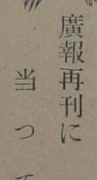 廣報再刊に
当つて